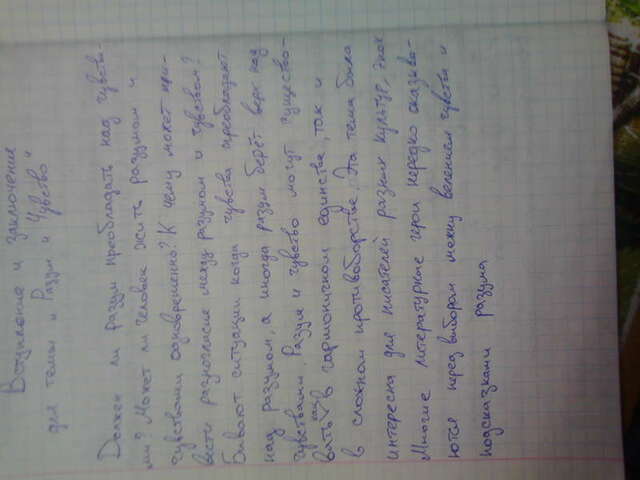 Вступление и заключение
для темы „Разум и Чувство"
Должен ли разум преобладать над чувства-
ми? Может ли человек жить разумом и
чувствами одновременно? К чему может при-
вести разногласие между разумом и чувством?
Бывают ситуации когда чувства преобладают
над разумом, а иногда разум берёт верх над
чувствами. Разум и чувство могут существо-
вать как в гармоничном единстве, так и
в сложном противоборстве. Эта тема была
интересна для писателей разных культур, эпох
Многие литературные герои нередко оказыва-
ются перед выбором между велением чувства и
подсказками разума